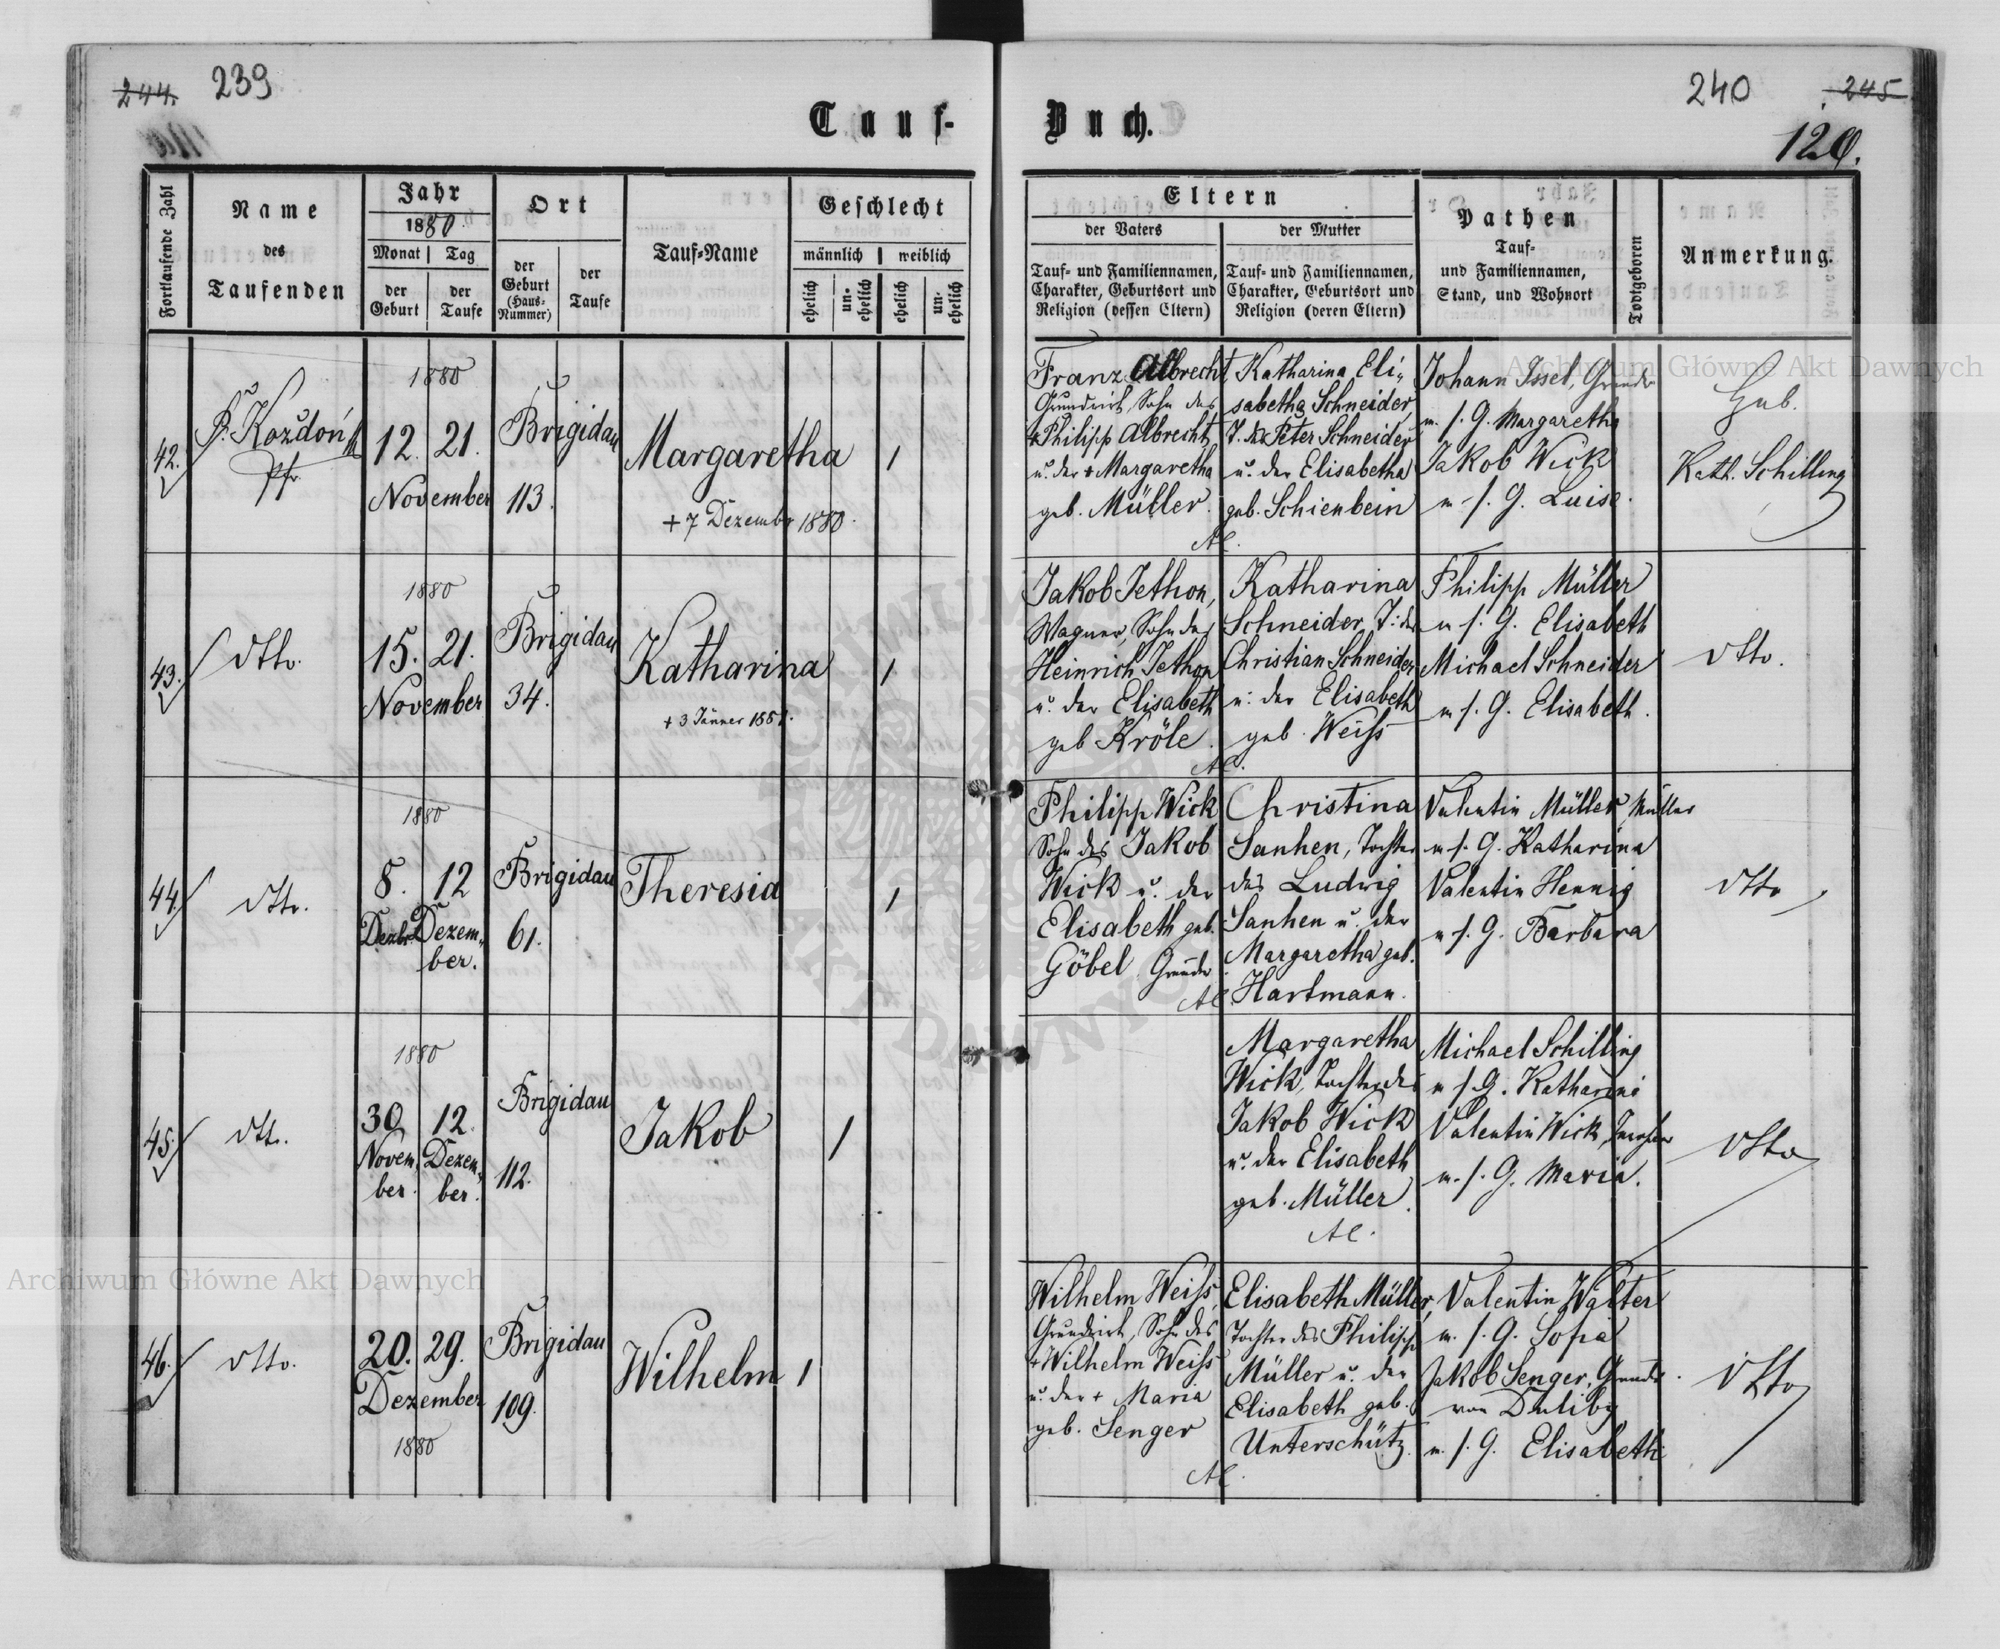 244.
239
Tauf-
Fortlaufende Zahl
Name
des
Taufenden
Jahr
1880.
Monat
Tag
der
Geburt
der
Taufe
Ort
der
Geburt
(Haus-
Nummer)
der
Taufe
Tauf-Name
Geschlecht
männlich
weiblich
ehelich
un-
ehelich
ehelich
un-
ehelich
42.
Fr. Kozdoń
Pfr.
1880
12. 21.
November
Brigidau
113.
Margaretha
+ 7 Dezember 1880.
1
43.
dtto.
1880
15. 21.
November
Brigidau
34.
Katharina
+ 3 Jänner 1881.
1
44.
dtto.
1880
8. 12
Dezbr Dezem-
ber.
Brigidau
61.
Theresia
1
45.
dtto.
1880
30 12.
Novem- Dezem-
ber. ber.
Brigidau
112.
Jakob
1
46.
dtto.
20. 29.
Dezember
1880
Brigidau
109.
Wilhelm
1
240
245
120.
Buch.
Eltern
der Vaters
Tauf- und Familiennamen,
Charakter, Geburtsort und
Religion (dessen Eltern)
der Mutter
Tauf- und Familiennamen,
Charakter, Geburtsort und
Religion (deren Eltern)
Pathen
Tauf-
und Familiennamen,
Stand, und Wohnort
Todtgeboren
Anmerkung.
Franz Albrecht,
Grundwirt, Sohn des
+ Philipp Albrecht
u. der + Margaretha
geb. Müller.
Katharina Eli-
sabetha Schneider,
T. des Peter Schneider
u. der Elisabetha
geb. Schienbein
AC.
Johann Issel, Grundw
m. s. G. Margaretha
Jakob Wick
m. s. G. Luise.
Heb.
Kath. Schilling
Jakob Jethon,
Wagner, Sohn des
Heinrich Jethon
u. der Elisabeth
geb Kröle.
Katharina
Schneider, T. des
Christian Schneider
u. der Elisabeth
geb. Weiss
AC.
Philipp Müller
m s. G. Elisabeth
Michael Schneider
m s. G. Elisabeth.
dtto.
Philipp Wick
Sohn des Jakob
Wick u. der
Elisabeth geb.
Göbel Grundw
Christina
Sanhen, Tochter
des Ludwig
Sanhen u. der
Margaretha geb.
Hartmann.
AC
Valentin Müller, Müller
m s. G. Katharina
Valentin Hennig
m s. G. Barbara
dtto
Margaretha
Wick, Tochter des
Jakob Wick
u. der Elisabeth
geb. Müller.
AC.
Michael Schilling
m s. G. Katharina
Valentin Wick,
m. s. G. Maria.
dtto
Wilhelm Weiss,
Grundwirt, Sohn des
+ Wilhelm Weiss
u. der + Maria
geb. Senger
Elisabeth Müller,
Tochter des Philipp
Müller u. der
Elisabeth geb.
Unterschütz.
AC.
Valentin Walter
m. s. G. Sofia
Jakob Senger, Grundw.
von Duliby
m. s. G. Elisabeth
dtto
Archiwum Główne Akt Dawnych
Archiwum Główne Akt Dawnych